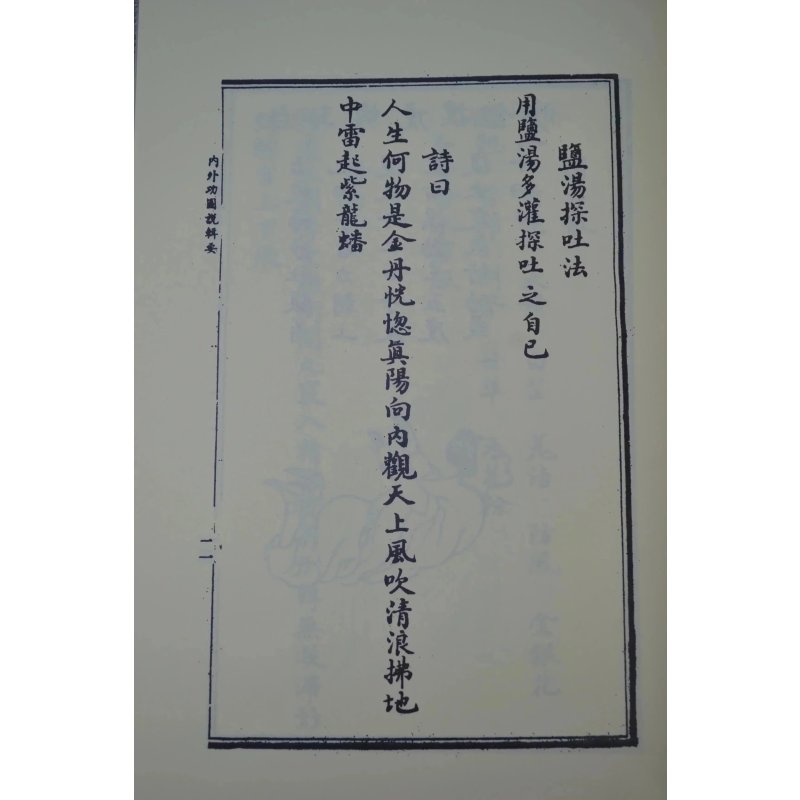 鹽湯探吐法
用鹽湯多灌探吐之自已
詩曰
人生何物是金丹恍惚眞陽向內觀天上風吹清浪拂地
中雷起紫龍蟠
內外功圖說輯要